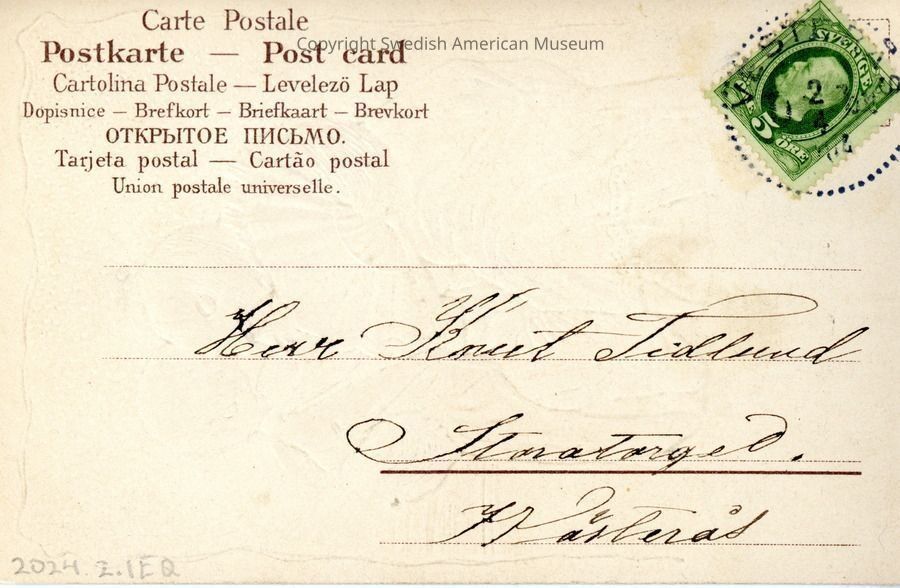 Carte Postale
Postkarte — Post card
Copyright Swedish American Museum
Cartolina Postale — Levelezö Lap
Dopisnice — Brefkort — Briefkaart — Brevkort
ОТКРЫТОЕ ПИСЬМО.
Tarjeta postal — Cartão postal
Union postale universelle.
SVERIGE
5
ÖRE
2
4
04
Herr Knut Tidlund
Storatorget.
Westerås
2024.2.1EQ